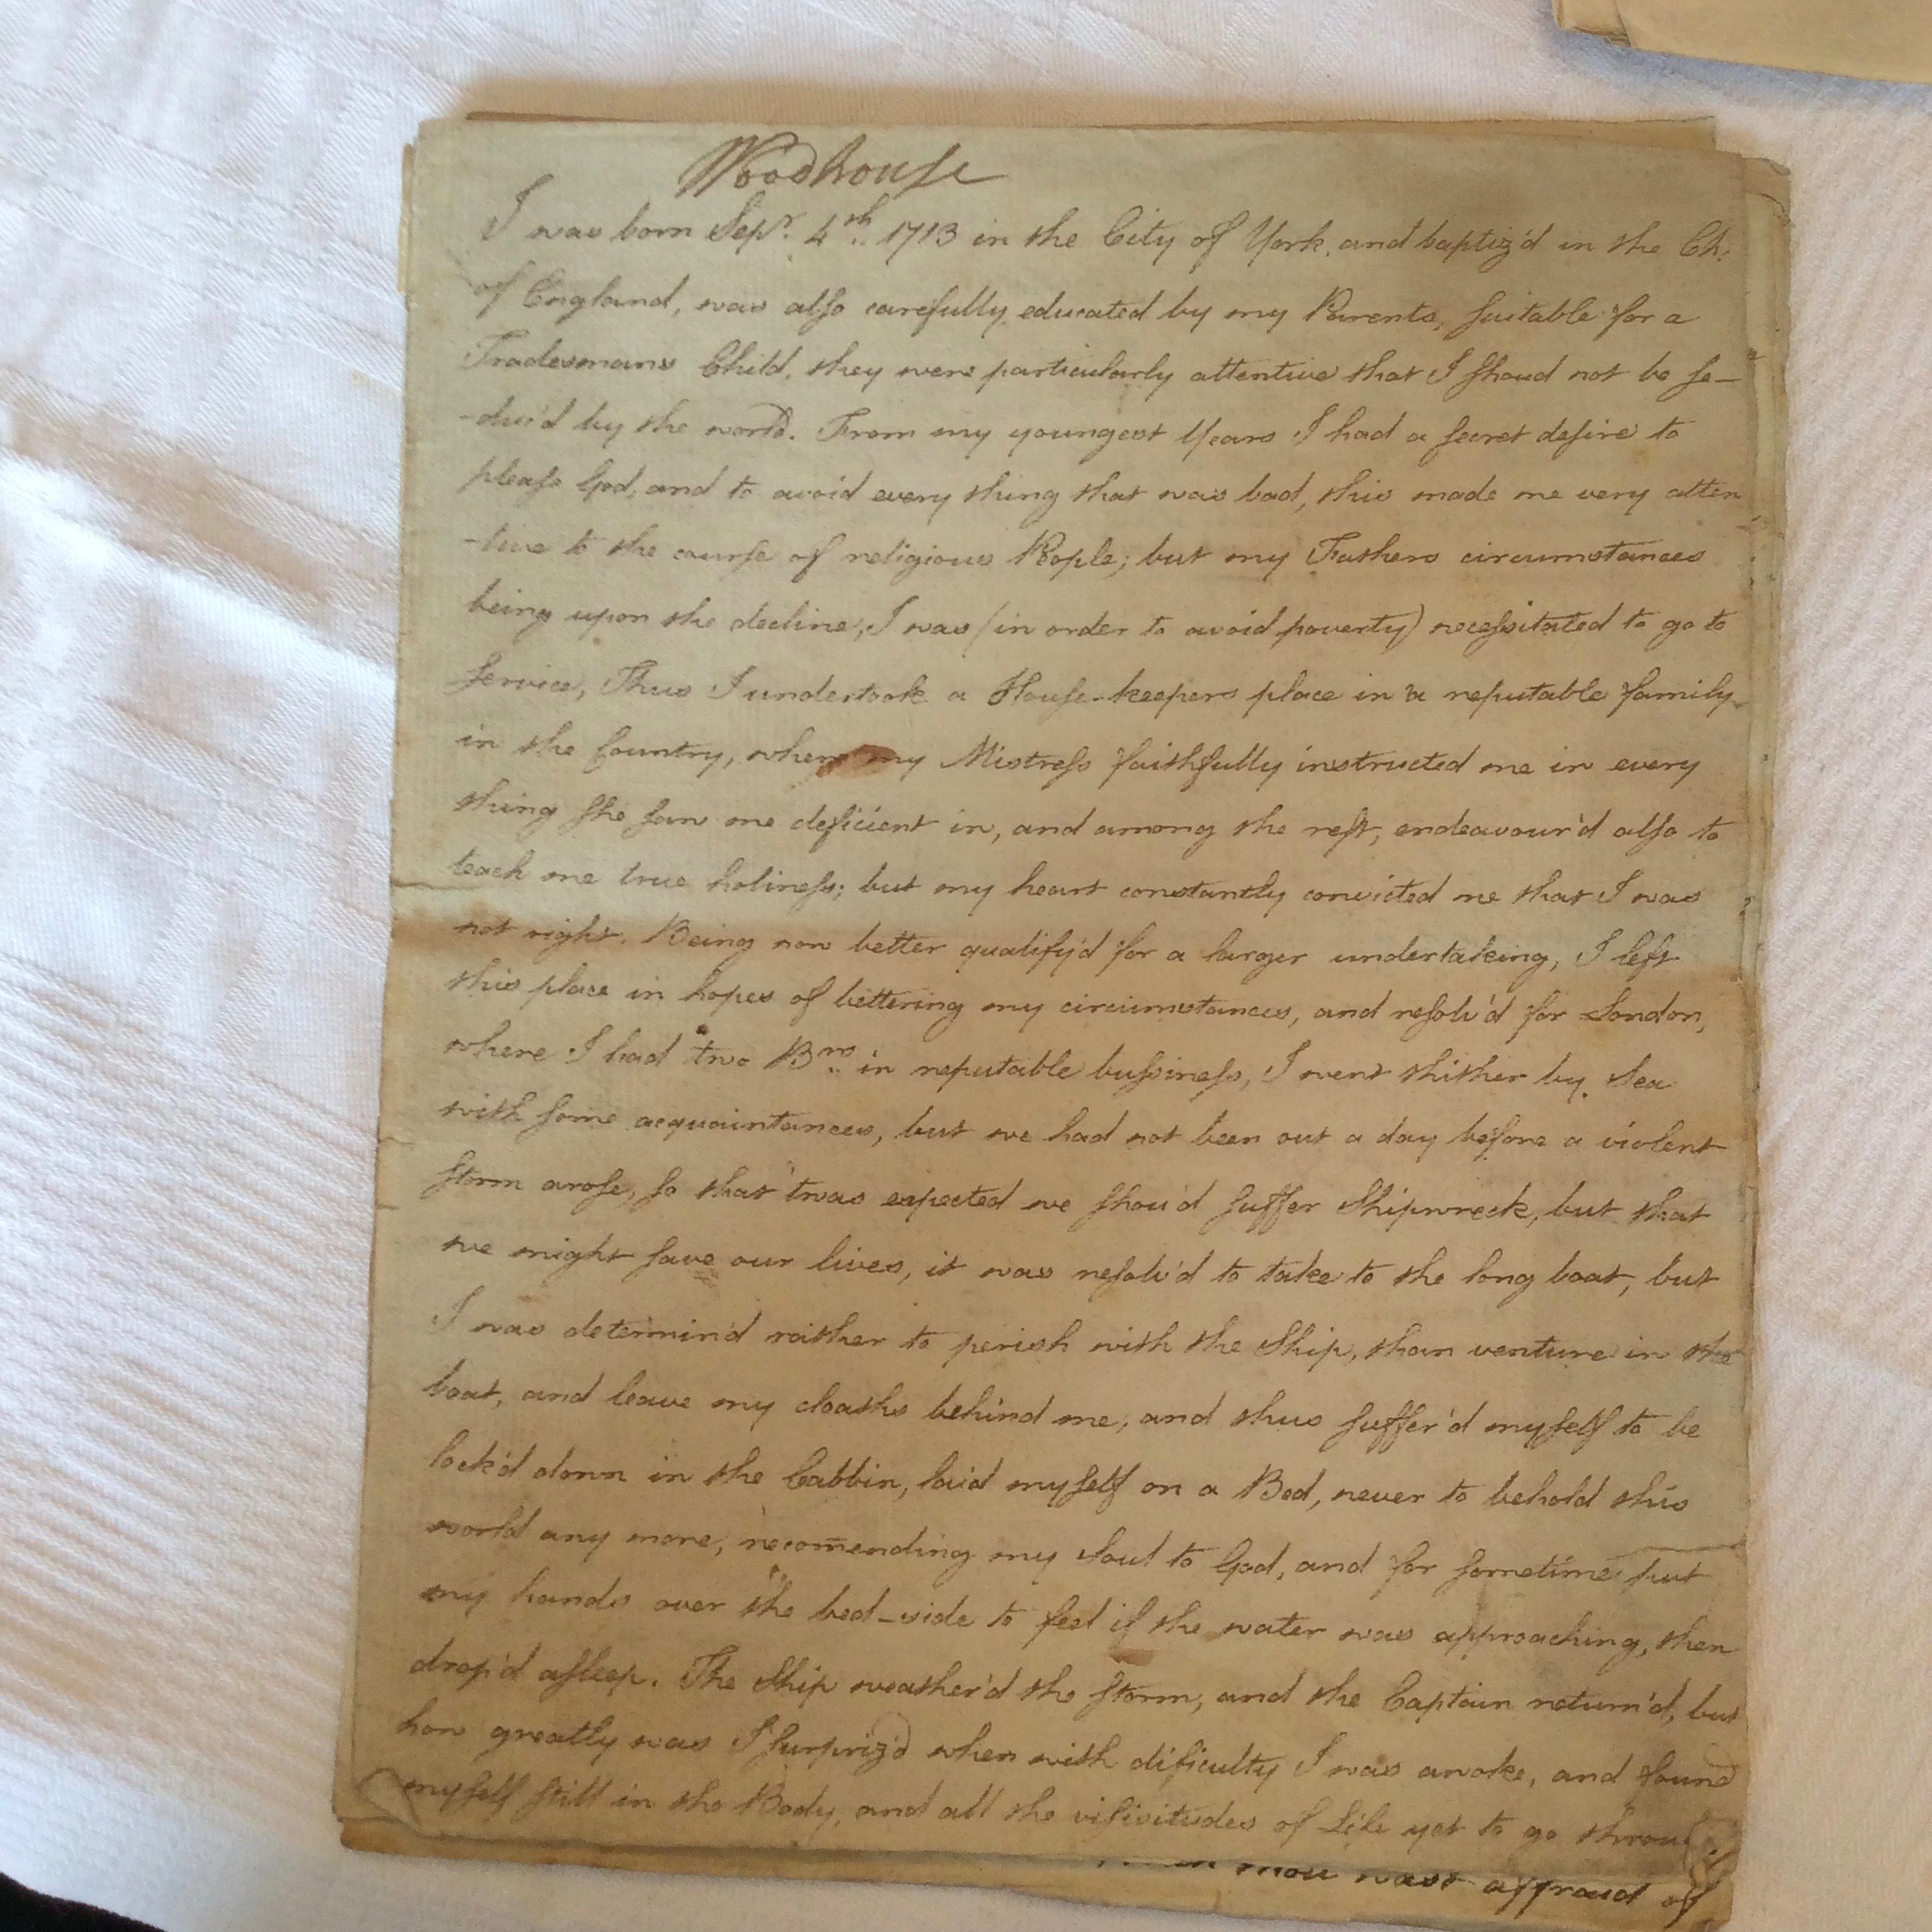 Woodhouse
I was born Sepr. 4th. 1713 in the City of York, and baptiz'd in the Ch:
of England, was also carefully educated by my Parents, suitable for a
Tradesmans Child, they were particularly attentive that I shoud not be se-
-duc'd by the world. From my youngest Years I had a secret desire to
please God, and to avoid every thing that was bad, this made me very atten
-tive to the course of religious People; but my Fathers circumstances
being upon the decline, I was (in order to avoid poverty) necessitated to go to
service, Thus I undertook a House-keepers place in a reputable family
in the Country, where my Mistress faithfully instructed me in every
thing she saw me deficient in, and among the rest, endeavour'd also to
teach me true holiness; but my heart constantly convicted me that I was
not right. Being now better qualify'd for a larger undertaking, I left
this place in hopes of bettering my circumstances, and resolv'd for London,
where I had two Brs. in reputable bussiness, I went thither by Sea
with some acquaintances, but we had not been out a day before a violent
storm arose, so that 'twas expected we shou'd suffer Shipwreck, but that
we might save our lives, it was resolv'd to take to the long boat, but
I was determin'd raither to perish with the Ship, than venture in the
boat, and leave my cloaths behind me, and thus suffer'd myself to be
lock'd down in the Cabbin, laid myself on a Bed, never to behold this
world any more, recomending my Soul to God, and for sometime put
my hands over the bed-side to feel if the water was approaching, then
drop'd asleep. The Ship weather'd the storm, and the Captain return'd, but
how greatly was I surpriz'd when with dificulty I was awoke, and found
myself still in the Body, and all the visisitudes of Life yet to go throu
thou wast affraid of